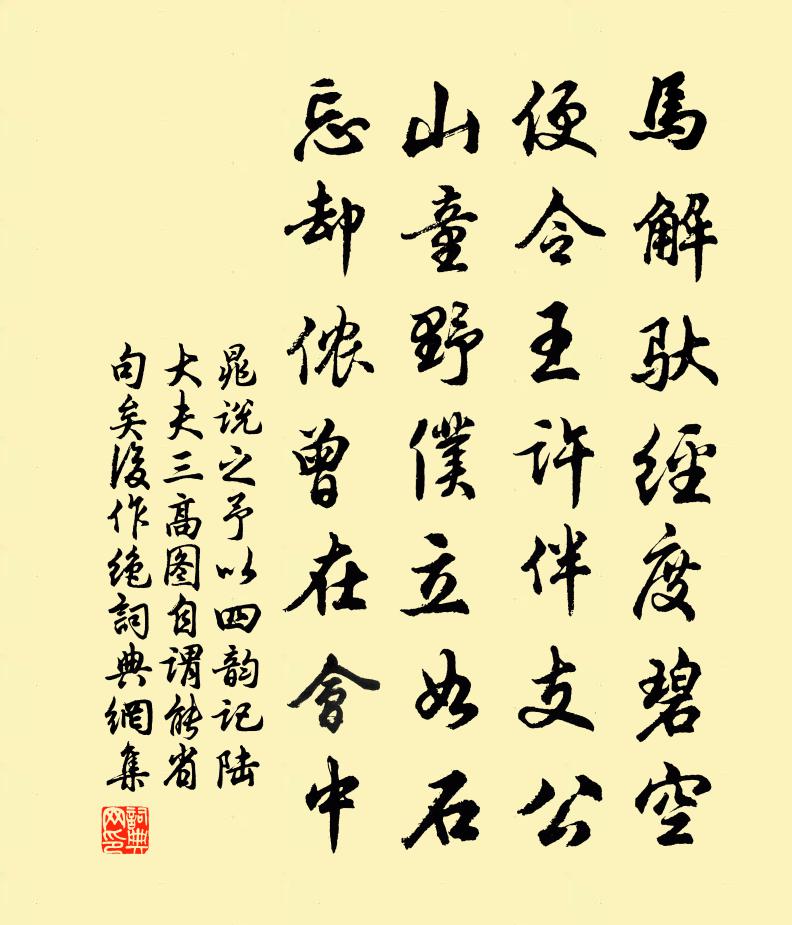 馬解馱經度碧空
便令王許伴支公
山童野僕立如石
忘却侬曾在會中
晁说之予以四韵记陆
大夫三高图自谓能省
句矣后作绝詞典網集
詞典网印